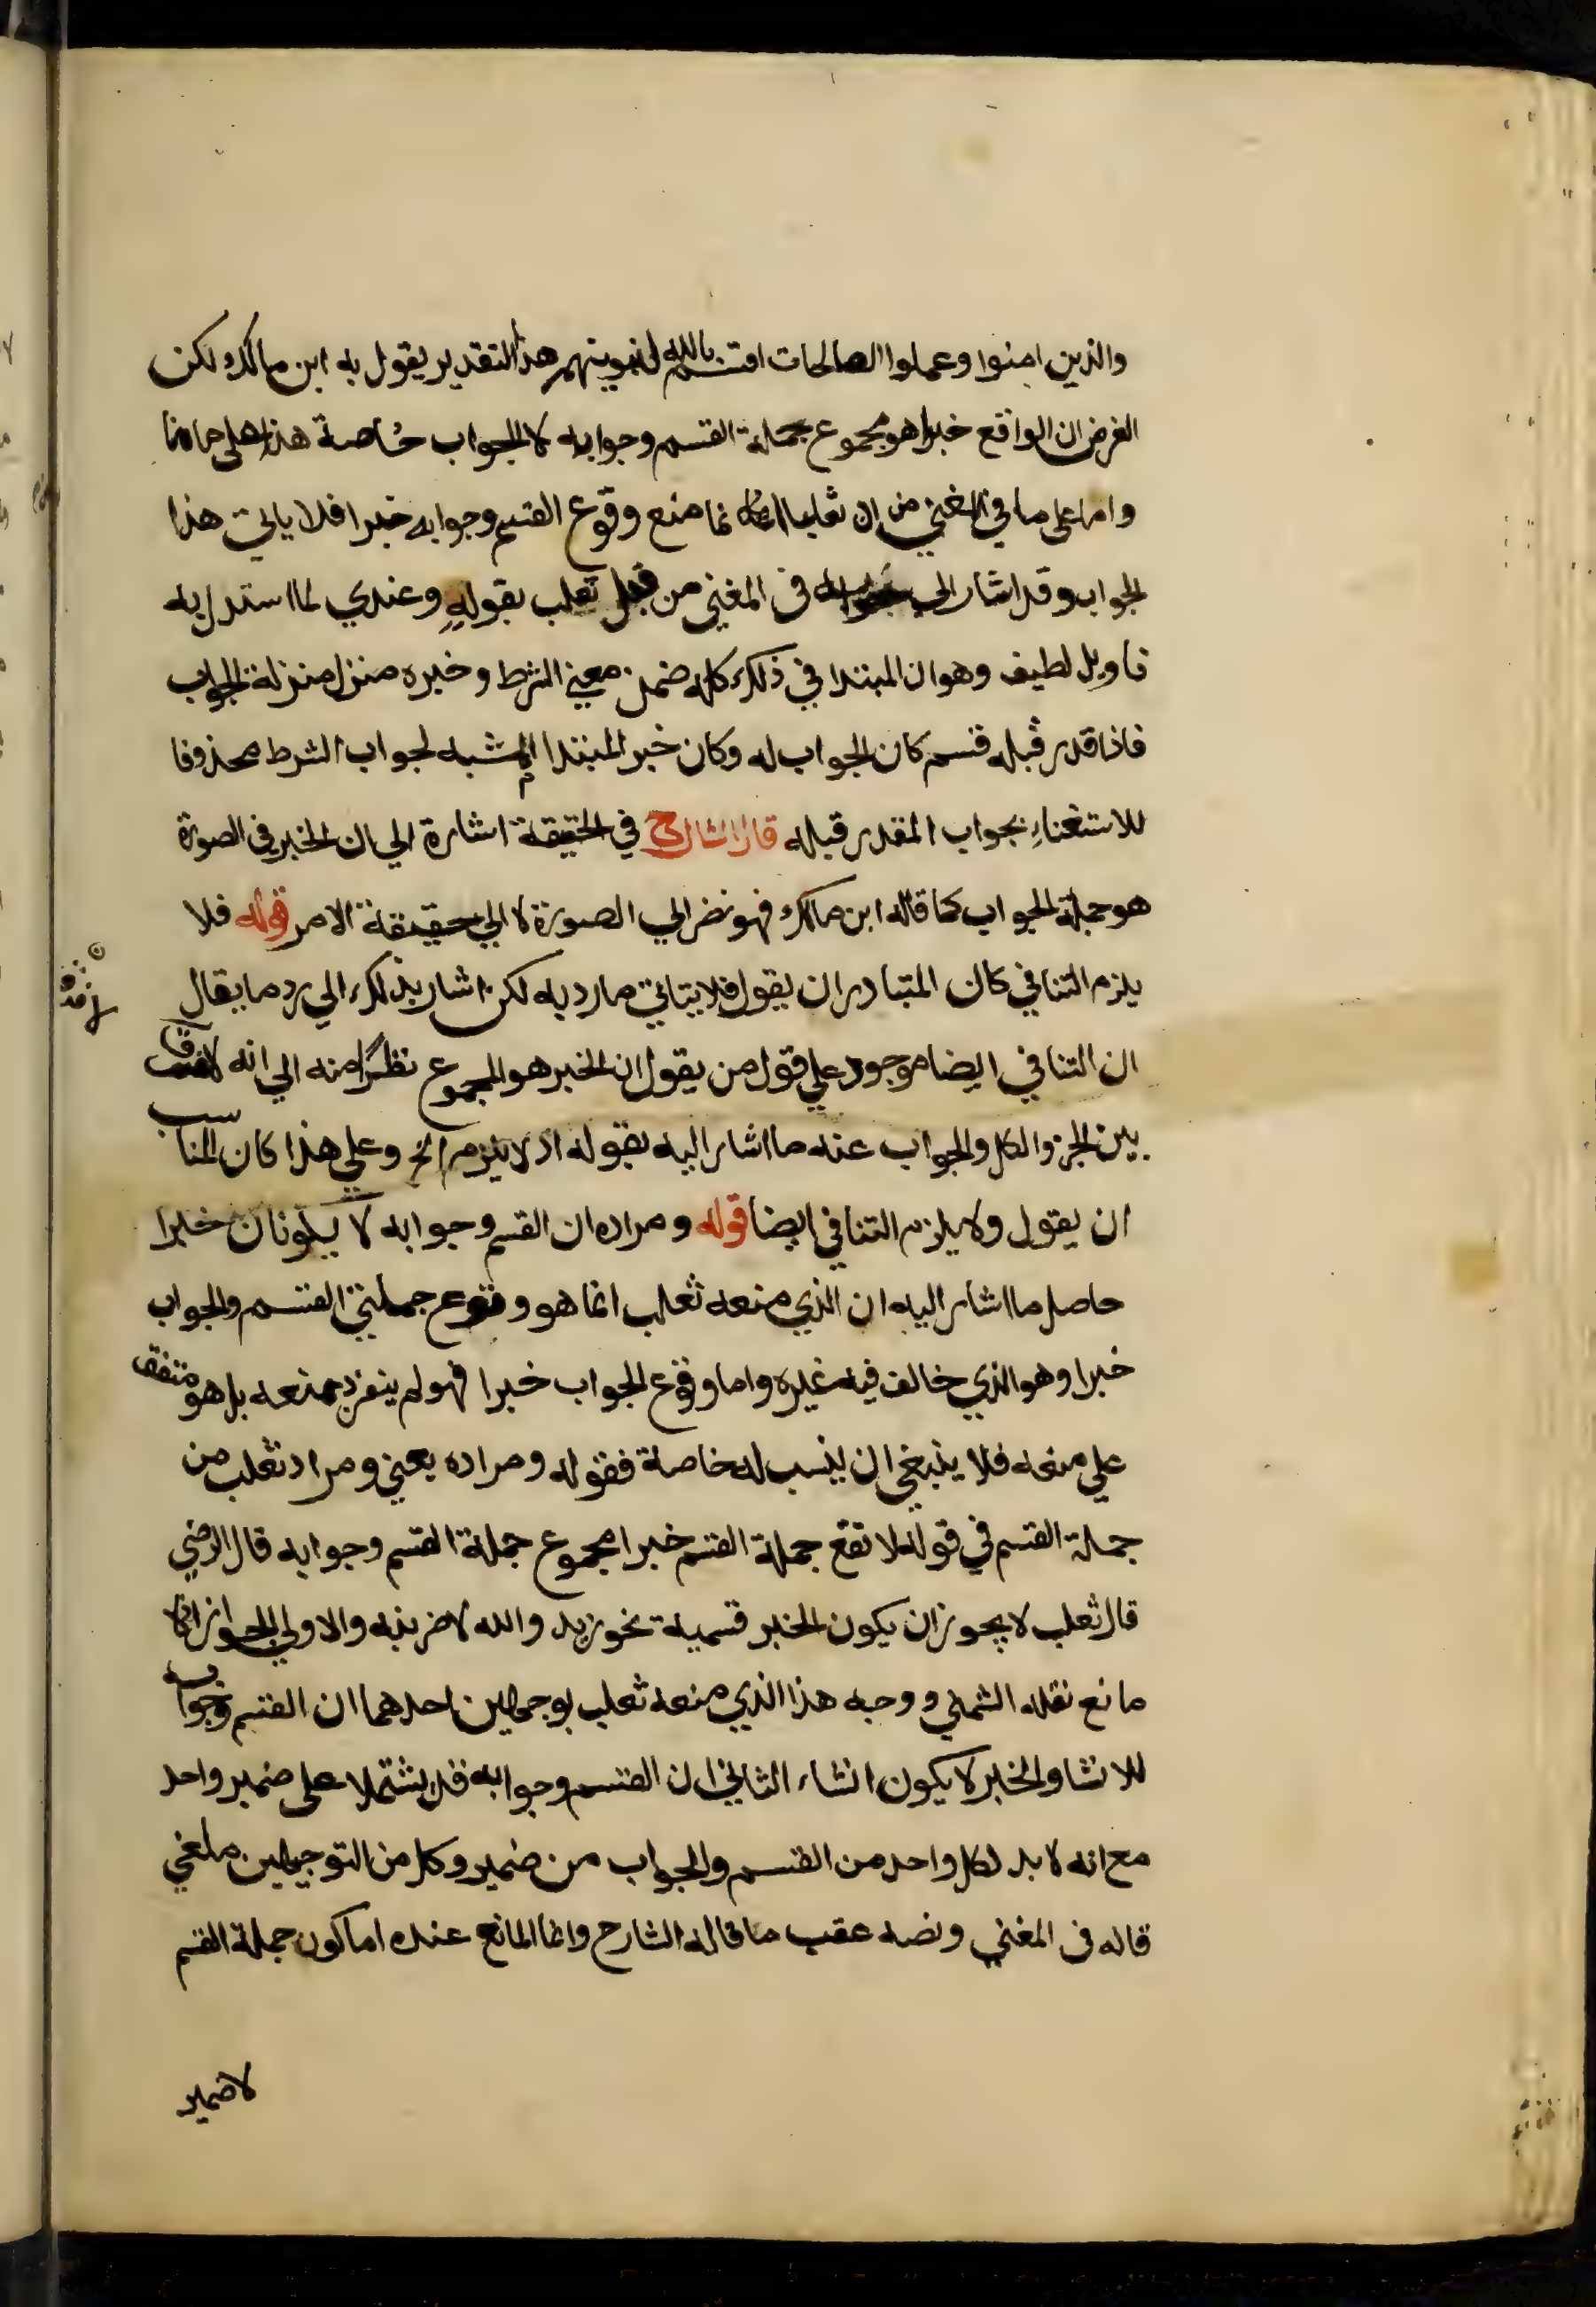 والذين امنوا وعملوا الصالحات اقسم بالله لنبوينهم هذا التقدير يقول به ابن مالك لكن
الغرض ان الواقع خبرا هو مجموع جملة القسم وجوابه لا الجواب خاصة هذا على ما هنا
واما على ما في المغني من ان ثعلبا انما منع وقوع القسم وجوابه خبرا فلا ياتي هذا
الجواب وقد اشار الى جوابه في المغني من قبل ثعلب بقوله وعندي لما استدل به
تاويل لطيف وهو ان المبتدا في ذلك كله ضمن معني الشرط وخبره منزل منزلة الجواب
فاذا قدر قبله قسم كان الجواب له وكان خبر المبتدا المشبه لجواب الشرط محذوفا
للاستغناء بجواب المقدر قبله قال الشارح في الحقيقة اشارة الي ان الخبر في الصورة
هو جملة الجواب كما قاله ابن مالك فهو نضر الي الصورة لا الي حقيقة الامر قوله فلا
يلزم التنافي كان المتبادر ان يقول فلا يتاتي ما رد به لكن اشار بذلك الي رد ما يقال
ان التنافي ايضا موجود علي قول من يقول ان الخبر هو المجموع نظرا منه الي انه لا فرق
بين الجزء والكل والجواب عنه ما اشار اليه بقوله اذ لا يلزم الخ وعلي هذا كان المناسب
ان يقول ولا يلزم التنافي ايضا قوله ومراده ان القسم وجوابه لا يكونان خبرا
حاصل ما اشار اليه ان الذي منعه ثعلب انما هو وقوع جملتي القسم والجواب
خبرا وهو الذي خالف فيه غيره واما وقوع الجواب خبرا فهو لم ينفرد بمنعه بل هو متفق
علي منعه فلا ينبغي ان ينسب له خاصة فقوله ومراده يعني ومراد ثعلب من
جملة القسم في قوله لا تقع جملة القسم خبرا مجموع جملة القسم وجوابه قال الرضي
قال ثعلب لا يجوز ان يكون الخبر قسمية نحو زيد والله لاضربنه والاولي الجواز اذ لا
مانع نقله الشمني ووجه هذا الذي منعه ثعلب بوجهين احدهما ان القسم وجوابه
للانشا والخبر لا يكون انشاء الثاني ان القسم وجوابه قد يشتملا على ضمير واحد
مع انه لا بد لكل واحد من القسم والجواب من ضمير وكل من التوجيهين ملغي
قاله في المغني ونصه عقب ما قاله الشارح وانما المانع عنده اما كون جملة القسم
لا ضمير